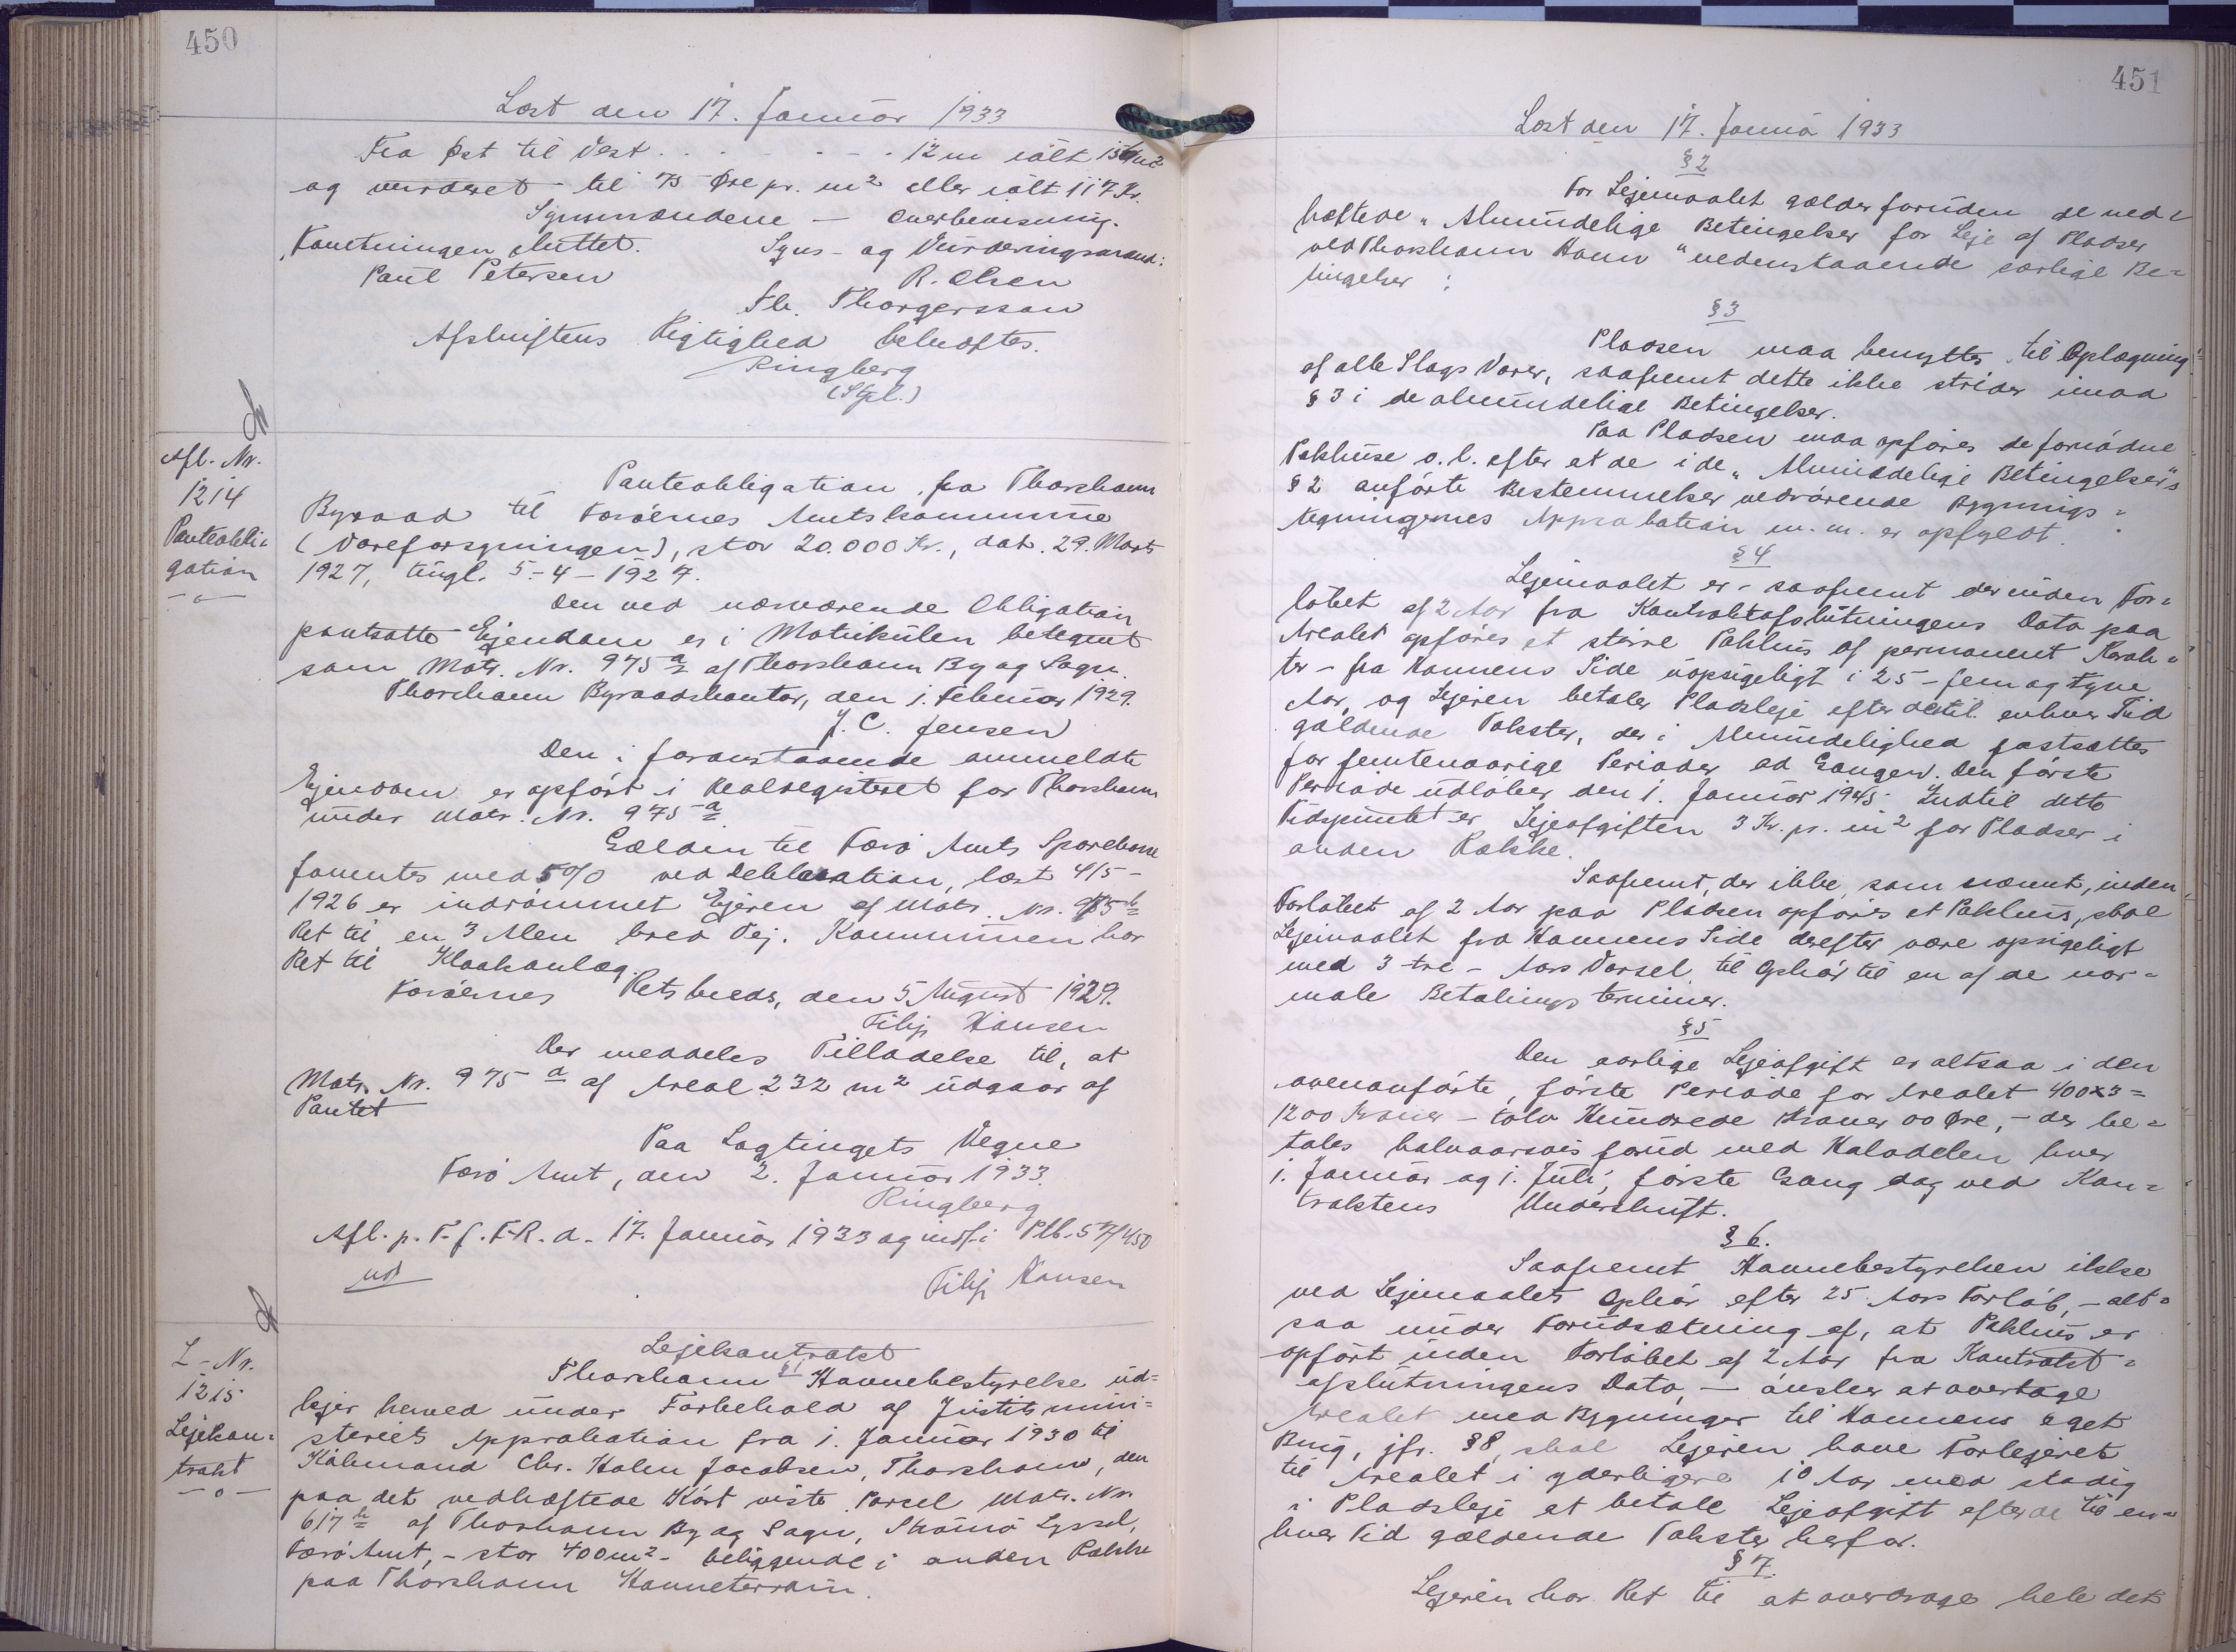 450
Læst den 17. Januar 1933
Fra Øst til Vest . . . - - - . 12 m ialt 156 m²
og vurderet - til 75 Øre pr. m² eller ialt 117 Kr.
Synsmændene - Overbevisning.
Forretningen sluttet. Syns- og Vurderingsmænd:
Paul Petersen R. Olsen
Th. Thorgersson
Afskriftens Rigtighed bekræftes.
Ringberg
(Stpl.)
Afl. Nr.
1214
Panteobli=
gation
Panteobligation fra Thorshavn
Byraad til Færøernes Amtskommune
(Vareforsyningen), stor 20.000 Kr., dat. 29. Marts
1927, tingl. 5-4-1927.
Den ved nærværende Obligation
pantsatte Ejendom er i Matrikulen betegnet
som Matr. Nr. 975 a af Thorshavn By og Sogn.
Thorshavn Byraadskontor, den 1. Februar 1929.
J. C. Jensen
Den i foranstaaende anmeldte
Ejendom er opført i Realregisteret for Thorshavn
under Matr. Nr. 975 a
Gælden til Færø Amts Sparekasse
forrentes med 5% ved Deklaration, læst 4/5-
1926 er indrømmet Ejeren af Matr. Nr. 975 b
Ret til en 3 Alen bred Vej. Kommunen har
Ret til Kloakanlæg.
Færøernes Retskreds, den 5 August 1929.
Filip Hansen
Der meddeles Tilladelse til, at
Matr. Nr. 975 d af Areal 232 m² udgaar af
Pantet
Paa Lagtingets Vegne
Færø Amt, den 2. Januar 1933.
Ringberg
Afl. p. T. f. F. R. d. 17. Januar 1933 og indf. i Ptb. 57/450
ud
Filip Hansen
L-Nr.
1215
Lejekon=
trakt
Lejekontrakt
§ 1
Thorshavn Havnebestyrelse ud=
lejer herved under Forbehold af Justitsmini=
steriets Approbation fra 1. Januar 1930 til
Købmand Chr. Holm Jacobsen, Thorshavn, den
paa det vedhæftede Kort viste Parsel Matr. Nr.
617 h af Thorshavn By og Sogn, Strømø Syssel,
Færø Amt, - stor 400 m² - beliggende i anden Række
paa Thorshavn Havneterrain.
451
Læst den 17. Janua 1933
§ 2
For Lejemaalet gælder foruden de ved=
hæftede "Almindelige Betingelser for Leje af Pladser
ved Thorshavn Havn" nedenstaaende særlige Be=
tingelser :
§ 3
Pladsen maa benyttes til Oplægning
af alle Slags Varer, saafremt dette ikke strider imod
§ 3 i de almindelige Betingelser.
Paa Pladsen maa opføres de fornødne
Pakhuse o. l. efter at de i de "Almindelige Betingelser"s
§ 2 anførte Bestemmelser vedrørende Bygnings=
tegningernes Approbation m. m. er opfyldt.
§ 4
Lejemaalet er - saafremt der inden For=
løbet af 2 Aar fra Kontraktafslutningens Dato paa
Arealet opføres et større Pakhus af permanent Karak=
ter - fra Havnens Side uopsigeligt i 25 - fem og tyve
Aar, og Lejeren betaler Pladsleje efter de til enhver Tid
gældende Takster, der i Almindelighed fastsættes
for femtenaarige Perioder ad Gangen. Den første
Periode udløber den 1. Januar 1945. Indtil dette
Tidspunkt er Lejeafgiften 3 Kr. pr. m² for Pladser i
anden Række.
Saafremt, der ikke, som nævnt, inden
Forløbet af 2 Aar paa Pladsen opføres et Pakhus, skal
Lejemaalet fra Havnens Side derefter være opsigeligt
med 3 - tre - Aars Varsel til Ophør til en af de nor=
male Betalingsterminer.
§ 5
Den aarlige Lejeafgift er altsaa i den
ovenanførte, første Periode for Arealet 400x3=
1200 Kroner - tolv Hundrede Kroner 00 Øre, - der be=
tales halvaarsvis forud med Halvdelen hver
1. Januar og 1. Juli, første Gang dog ved Kon=
traktens Underskrift.
§ 6.
Saafremt Havnebestyrelsen ikke
ved Lejemaalets Ophør efter 25 Aars Forløb, - alt=
saa under Forudsætning af, at Pakhus er
opført inden Forløbet af 2 Aar fra Kontrakt=
afslutningens Dato, - ønsker at overtage
Arealet med Bygninger til Havnens eget
Brug, jfr. § 8, skal Lejeren have Forlejeret
til Arealet i yderligere 10 Aar med stadig
i Pladsleje at betale Lejeafgift efter de til en=
hver Tid gældende Takster herfor.
§ 7.
Lejeren har Ret til at overdrage hele det